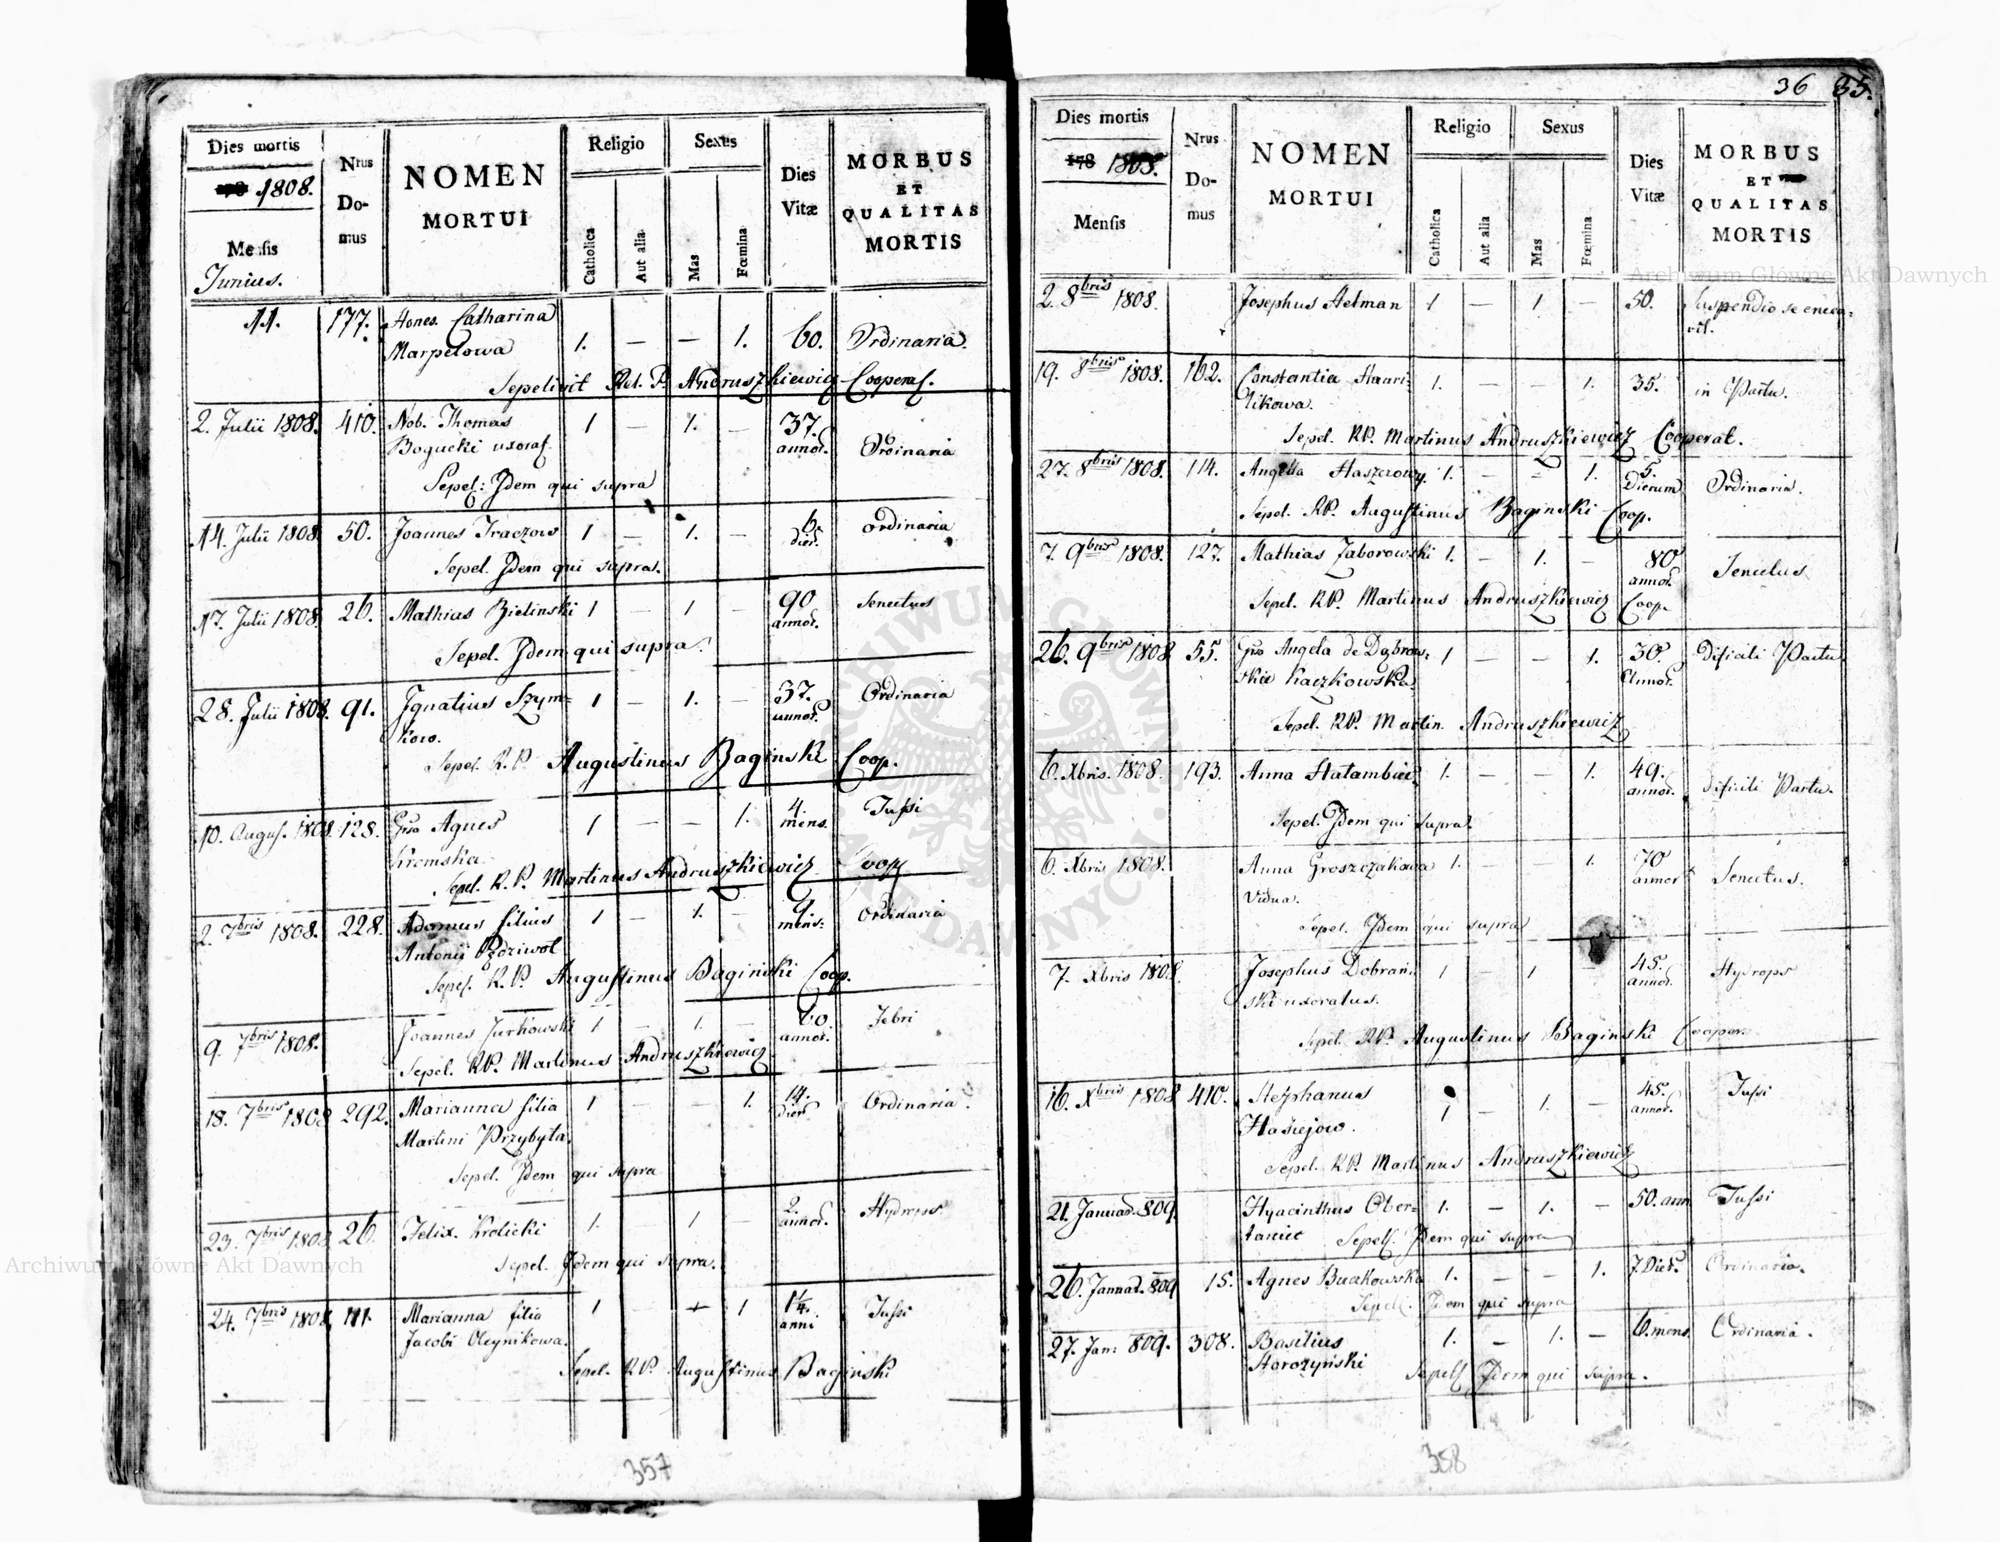 Dies mortis
178 1808.
Mensis
Junius.
Nrus
Do-
mus
NOMEN
MORTUI
Religio
Catholica
Aut alia
Sexus
Mas
Fœmina
Dies
Vitæ
MORBUS
ET
QUALITAS
MORTIS
11. 177. Hones. Catharina
Marpelowa 1. — — 1. 60. Ordinaria.
Sepelivit Andruszkiewicz Cooperat.
2. Julii 1808. 410. Nob. Thomas 1 — 1. — 37.
Bogucki uxorat. annor. Ordinaria
Sepel: Idem qui supra
14. Julii 1808. 50. Joannes Traczow 1 — 1. — 6. Ordinaria
dier.
Sepel. Idem qui supra.
17. Julii 1808. 26. Mathias Bielinski 1 — 1 — 90 Senectus
annor.
Sepel. Idem qui supra.
28. Julii 1808. 91. Ignatius Szym= 1 — 1. — 37. Ordinaria
kow. annor.
Sepel. R.P. Augustinus Baginski Coop.
10. August. 1808. 128. Agnes 1 — — 1. 4. Tussi
Kromska mens.
Sepel. R.P. Martinus Andruszkiewicz Coop
2. 7bris 1808. 228. Adamus filius 1 — 1. — 9. Ordinaria
Antonii mens:
Sepel. R.P. Augustinus Baginski Coop.
9. 7bris 1808. Joannes Jurkowski 1 — 1. — 60. Febri
annor.
Sepel. RP. Martinus Andruszkiewicz
18. 7bris 1808 292. Marianna filia 1 — — 1. 14. Ordinaria.
Martini Przybyla. dier.
Sepel. Idem qui supra
23. 7bris 1808 26. Felix Krolicki 1. — 1 — 2. Hydrops.
annor.
Sepel. Idem qui supra.
24. 7bris 1808. 111. Marianna filia 1 — + 1 14. Tussi
Jacobi Oleynikowa. anni
Sepel. RP. Augustinus Baginski
357
36 35.
Dies mortis
178 1808.
Mensis
Nrus
Do-
mus
NOMEN
MORTUI
Religio
Catholica
Aut alia
Sexus
Mas
Fœmina
Dies
Vitæ
MORBUS
ET
QUALITAS
MORTIS
2. 8bris 1808. Josephus Hetman 1 — 1. — 50. Suspendio se eneca=
vit.
19. 8bris 1808. 162. Constantia 1. — — 1. 35. in Partu.
Sepel. RP. Martinus Andruszkiewicz Cooperat.
27. 8bris 1808. 114. Angella Staszcrowy. 1. — — 1. 5. Ordinaria.
Dierum
Sepel. RP. Augustinus Baginski Coop.
7. 9bris 1808. 127. Mathias Zaborowski 1. — 1. — 80. Senectus
annor.
Sepel. RP. Martinus Andruszkiewicz Coop.
26. 9bris 1808 55. Angela de Dąbrow= 1 — — 1. 30. Dificili Partu
skie Kaczkowska. Annor.
Sepel. RP. Martin. Andruszkiewicz
6. Xbris. 1808. 193. Anna 1. — — 1. 49. dificili Partu.
annor.
Sepel. Idem qui supra.
6. Xbris 1808. Anna Groszczakowa 1. — — 1. 70 Senectus.
Vidua. annor
Sepel. Idem qui supra
7. Xbris 1808. Josephus Dobran= 1 — 1 — 45. Hydrops
ski uxoratus. annor.
Sepel. RP. Augustinus Baginski Cooper.
16. Xbris 1808 410. Stephanus 1 — 1. — 45. Tussi
annor.
Sepel. RP. Martinus Andruszkiewicz
21. Januar. 809. Hyacinthus Ober= 1. — 1. — 50. ann Tussi
taniec Sepel. Idem qui supra
26. Januar. 809 15. Agnes Buczkowska 1. — — 1. 7. Dier. Ordinaria.
Sepel. Idem qui supra
27. Jan: 809. 308. Basilius 1. — 1. — 6. mens. Ordinaria.
Storożyński
Sepel. Idem qui supra.
358
Archiwum Główne Akt Dawnych
Archiwum Główne Akt Dawnych